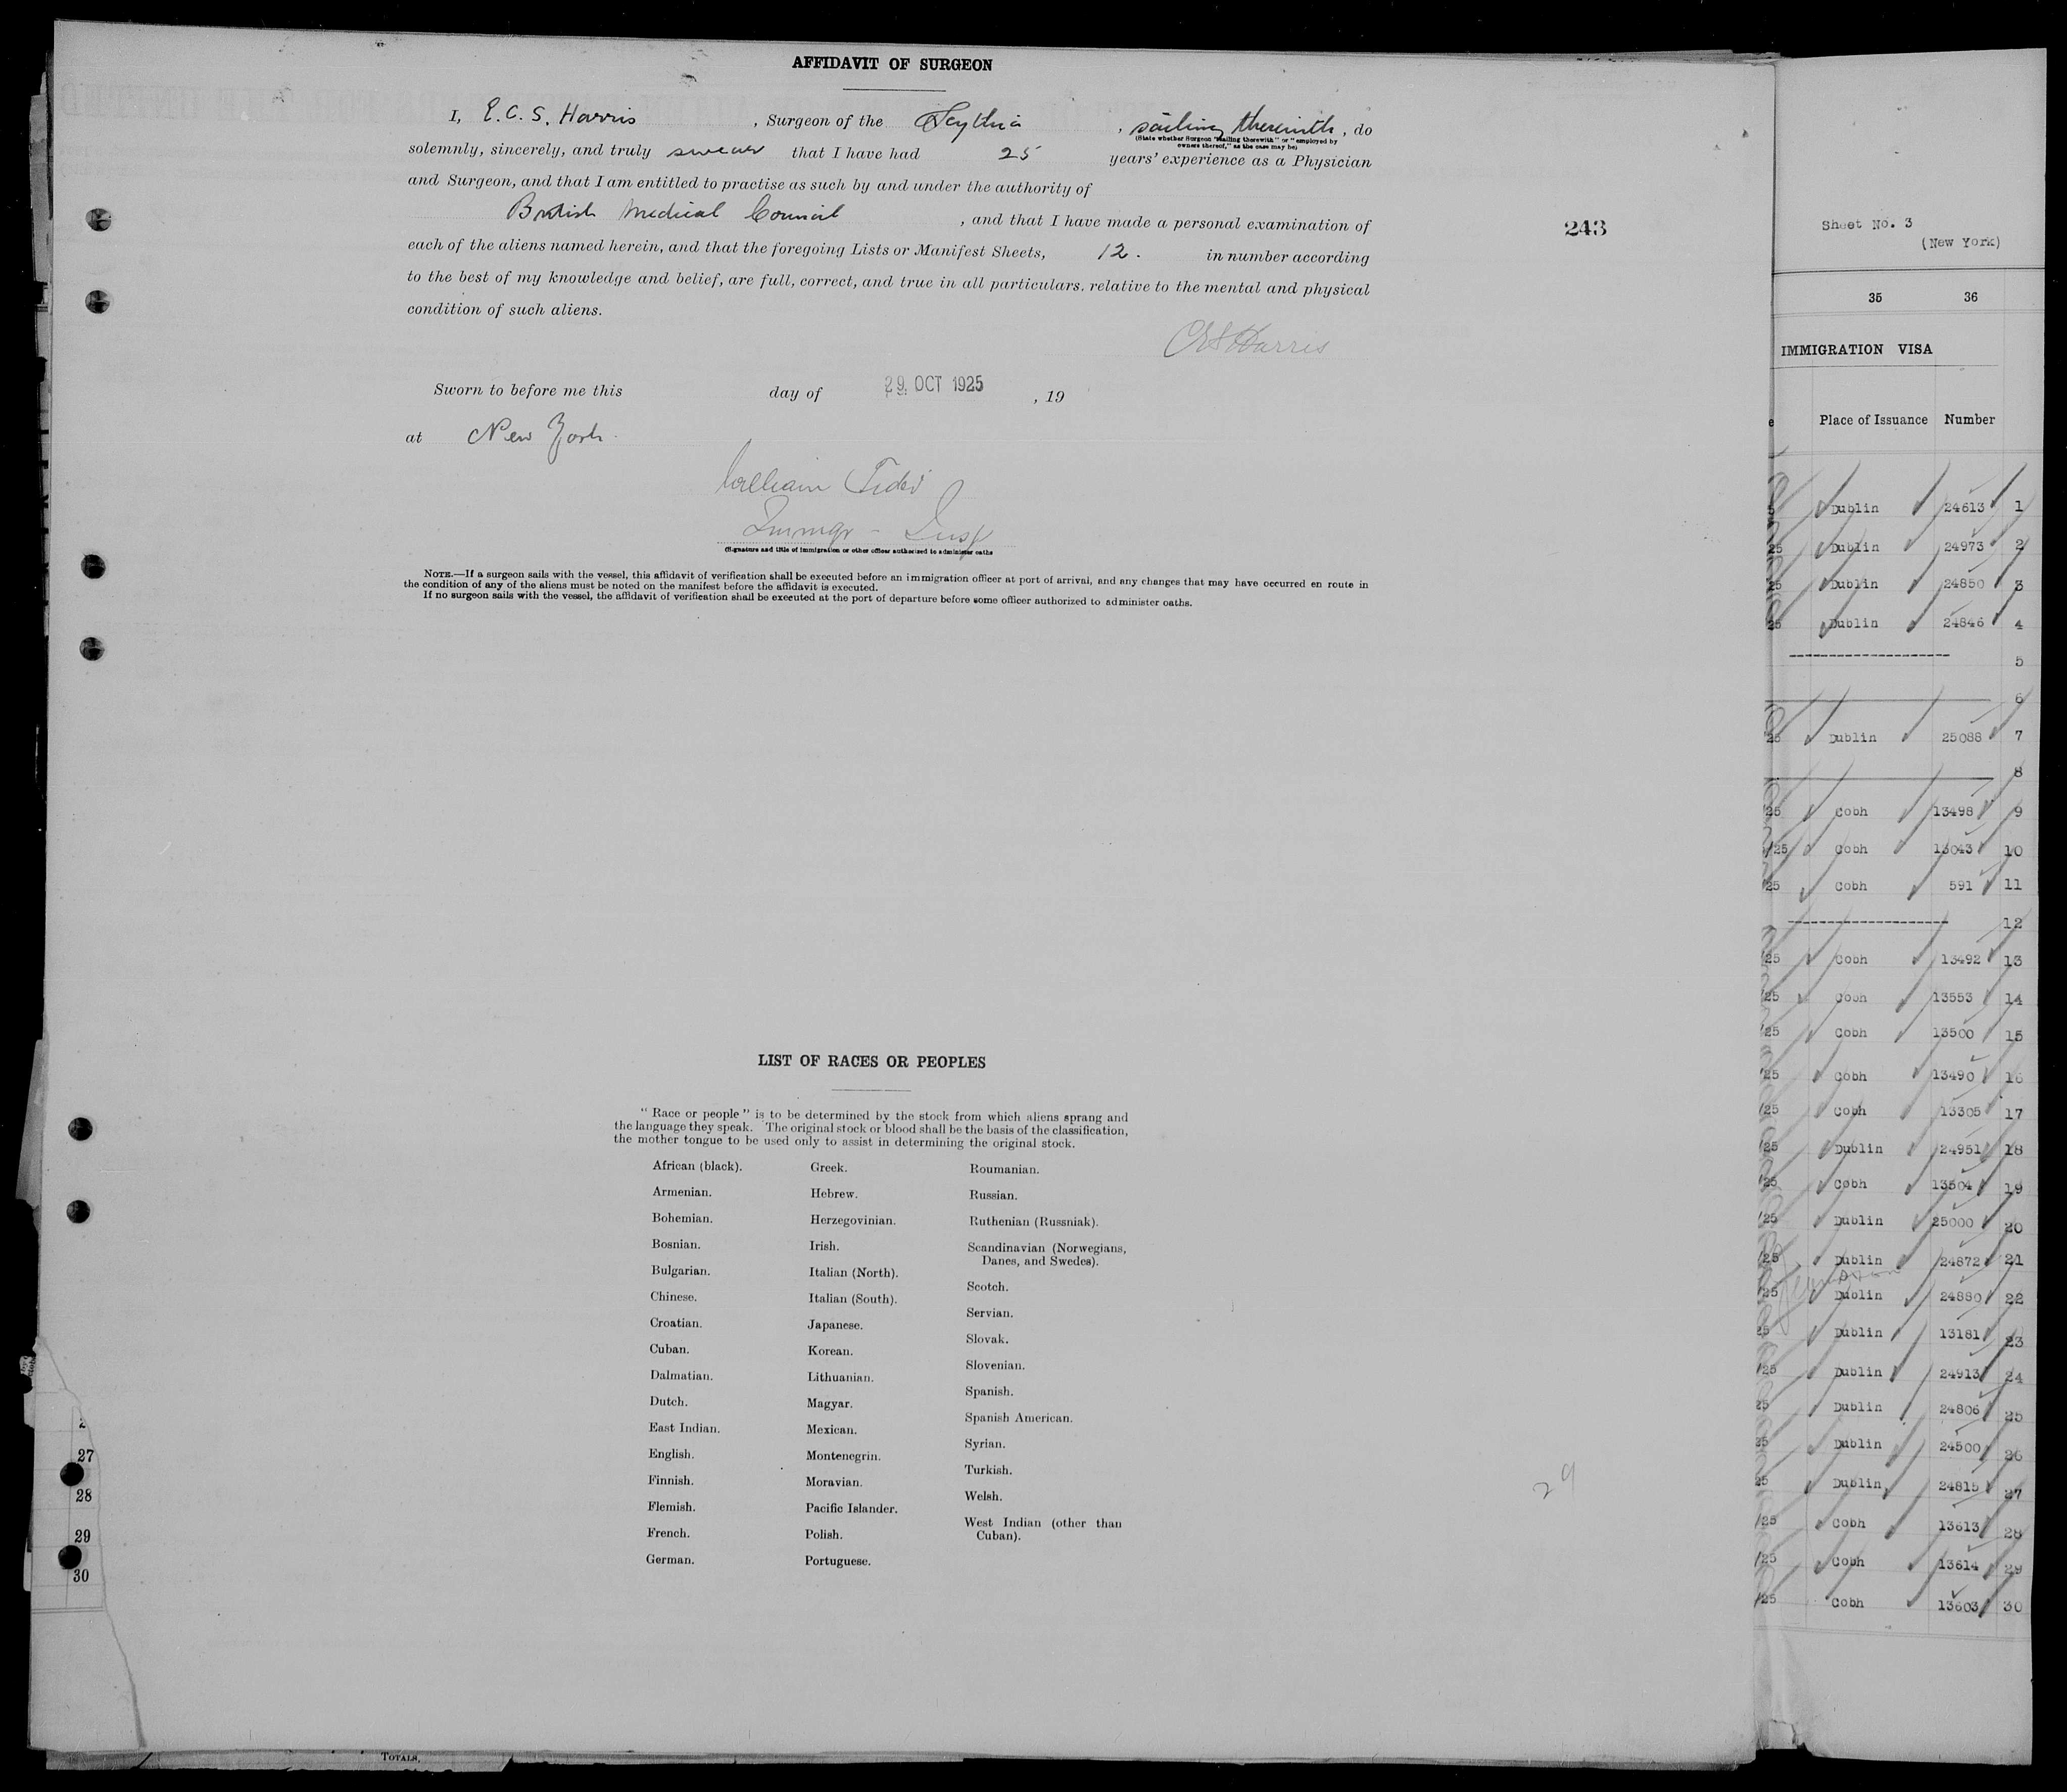 AFFIDAVIT OF SURGEON
I, E. C. S. Harris, Surgeon of the Scythia, sailing therewith, do
(State whether Surgeon "sailing therewith" or "employed by
owners thereof," as the case may be)
solemnly, sincerely, and truly swear that I have had 25 years' experience as a Physician
and Surgeon, and that I am entitled to practise as such by and under the authority of
British Medical Council, and that I have made a personal examination of
each of the aliens named herein, and that the foregoing Lists or Manifest Sheets, 12. in number according
to the best of my knowledge and belief, are full, correct, and true in all particulars. relative to the mental and physical
condition of such aliens.
Harris
Sworn to before me this day of 29 OCT 1925, 19
at New York.
William
Immgr - Insp
(Signature and title of immigration or other officer authorized to administer oaths
NOTE.—If a surgeon sails with the vessel, this affidavit of verification shall be executed before an immigration officer at port of arrival, and any changes that may have occurred en route in
the condition of any of the aliens must be noted on the manifest before the affidavit is executed.
If no surgeon sails with the vessel, the affidavit of verification shall be executed at the port of departure before some officer authorized to administer oaths.
243
LIST OF RACES OR PEOPLES
"Race or people" is to be determined by the stock from which aliens sprang and
the language they speak. The original stock or blood shall be the basis of the classification,
the mother tongue to be used only to assist in determining the original stock.
African (black).
Armenian.
Bohemian.
Bosnian.
Bulgarian.
Chinese.
Croatian.
Cuban.
Dalmatian.
Dutch.
East Indian.
English.
Finnish.
Flemish.
French.
German.
Greek.
Hebrew.
Herzegovinian.
Irish.
Italian (North).
Italian (South).
Japanese.
Korean.
Lithuanian.
Magyar.
Mexican.
Montenegrin.
Moravian.
Pacific Islander.
Polish.
Portuguese.
Roumanian.
Russian.
Ruthenian (Russniak).
Scandinavian (Norwegians,
Danes, and Swedes).
Scotch.
Servian.
Slovak.
Slovenian.
Spanish.
Spanish American.
Syrian.
Turkish.
Welsh.
West Indian (other than
Cuban).
29
27
28
29
30
TOTALS,
Sheet No. 3
(New York)
35 36
IMMIGRATION VISA
Place of Issuance Number
Dublin 24613 1
25 Dublin 24973 2
25 Dublin 24850 3
25 Dublin 24846 4
5
6
25 Dublin 25088 7
8
25 Cobh 13498 9
/25 Cobh 13043 10
/25 Cobh 591 11
12
/25 Cobh 13492 13
/25 Cobh 13553 14
/25 Cobh 13500 15
/25 Cobh 13490 16
/25 Cobh 13305 17
/25 Dublin 24951 18
/25 Cobh 13504 19
/25 Dublin 25000 20
/25 Dublin 24872 21
/25 Dublin 24880 22
25 Dublin 13181 23
/25 Dublin 24913 24
25 Dublin 24806 25
25 Dublin 24500 26
25 Dublin 24815 27
/25 Cobh 13613 28
/25 Cobh 13614 29
/25 Cobh 13603 30